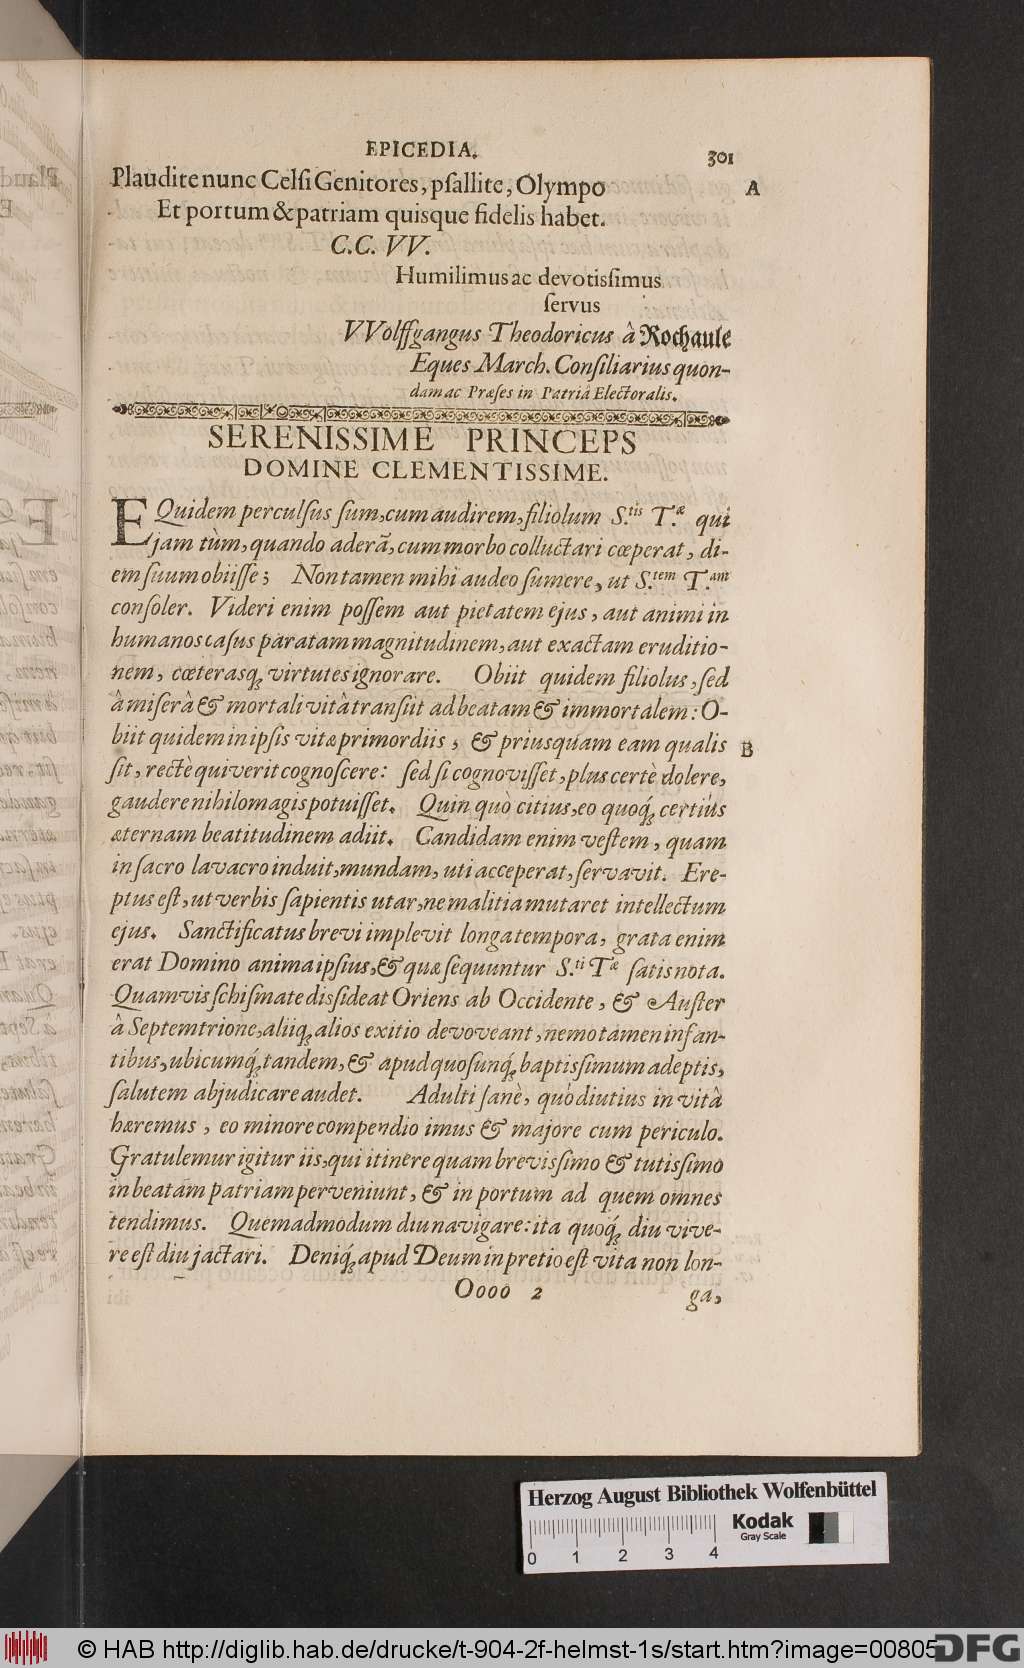 EPICEDIA. 301
Plaudite nunc Celſi Genitores, pſallite, Olympo A
Et portum & patriam quisque fidelis habet.
C.C. VV.
Humilimus ac devotisſimus
ſervus
VVolffgangus Theodoricus â Rochaule
Eques March. Conſiliarius quon-
dam ac Præſes in Patriâ Electoralis.
SERENISSIME PRINCEPS
DOMINE CLEMENTISSIME.
EQuidem perculſus ſum, cum audirem, filiolum S.tis T.æ qui
jam tùm, quando aderã, cum morbo colluctari cœperat, di-
em ſuum obiiſſe; Non tamen mihi audeo ſumere, ut S.tem T.am
conſoler. Videri enim poſſem aut pietatem ejus, aut animi in
humanos caſus paratam magnitudinem, aut exactam eruditio-
nem, cœterasq́; virtutes ignorare. Obiit quidem filiolus, ſed
â miſerâ & mortali vitâ tranſiit ad beatam & immortalem: O-
biit quidem in ipſis vitæ primordiis, & priusquam eam qualis B
ſit, rectè quiverit cognoſcere: ſed ſi cognoviſſet, plus certè dolere,
gaudere nihilo magis potuiſſet. Quin quò citius, eo quoq́; certiùs
æternam beatitudinem adiit. Candidam enim veſtem, quam
in ſacro lavacro induit, mundam, uti acceperat, ſervavit. Ere-
ptus eſt, ut verbis ſapientis utar, ne malitia mutaret intellectum
ejus. Sanctificatus brevi implevit longa tempora, grata enim
erat Domino anima ipſius, & quæ ſequuntur S.ti Tæ ſatis nota.
Quamvis ſchiſmate disſideat Oriens ab Occidente, & Auſter
â Septemtrione, aliiq́; alios exitio devoveant, nemo tamen infan-
tibus, ubicumq́; tandem, & apud quoſunq́; baptisſimum adeptis,
ſalutem abjudicare audet. Adulti ſanè, quò diutius in vitâ
hæremus, eo minore compendio imus & majore cum periculo.
Gratulemur igitur iis, qui itinere quam brevisſimo & tutisſimo
in beatam patriam perveniunt, & in portum ad quem omnes
tendimus. Quemadmodum diu navigare: ita quoq́; diu vive-
re eſt diu jactari. Deniq́; apud Deum in pretio eſt vita non lon-
Oooo 2 ga,
Herzog August Bibliothek Wolfenbüttel
0 1 2 3 4
Kodak
Gray Scale
© HAB http://diglib.hab.de/drucke/t-904-2f-helmst-1s/start.htm?image=00805
DFG